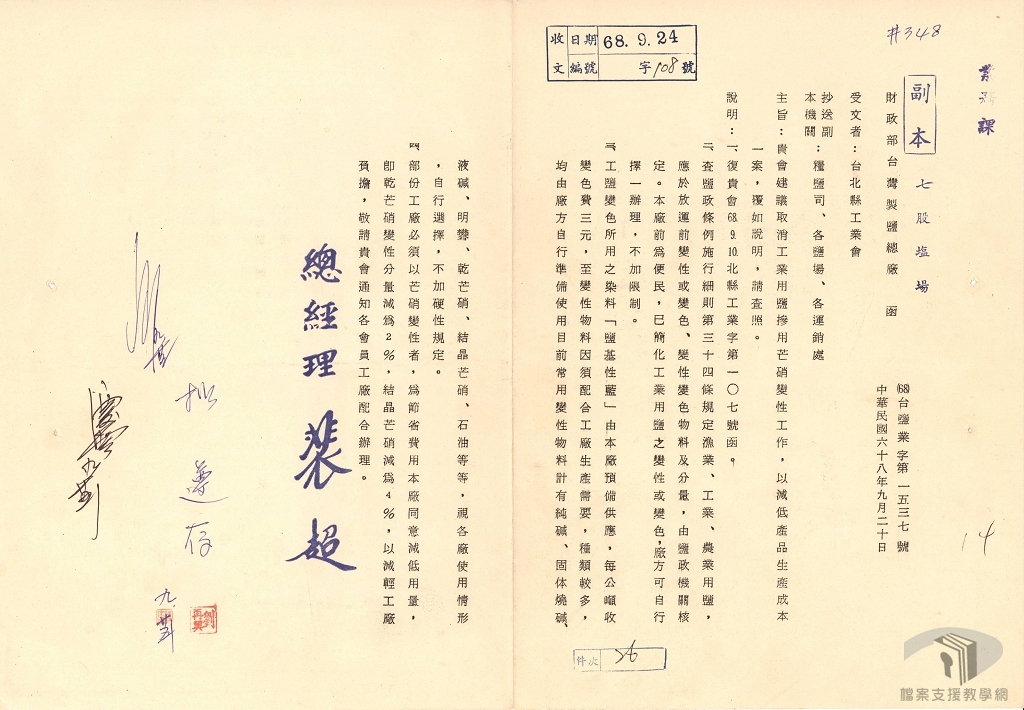 #348
業務課
收文 日期 68.9.24
編號 字108號
副本
七股塩場
財政部台灣製鹽總廠 函
(68)台鹽業字第一五三七號
中華民國六十八年九月二十日
受文者：台北縣工業會
抄送副本機關：種鹽司、各鹽場、各運銷處
主旨：貴會建議取消工業用鹽摻用芒硝變性工作，以減低產品生產成本
一案，覆如說明，請查照。
說明：一、復貴會68.9.10.北縣工業字第一〇七號函。
二、查鹽政條例施行細則第三十四條規定漁業、工業、農業用鹽，
應於放運前變性或變色、變性變色物料及分量，由鹽政機關核
定。本廠前為便民，已簡化工業用鹽之變性或變色，廠方可自行
擇一辦理，不加限制。
三、工鹽變色所用之染料「鹽基性藍」由本廠預備供應，每公噸收
變色費三元，至變性物料因須配合工廠生產需要，種類較多，
均由廠方自行準備使用目前常用變性物料計有純碱、固体燒碱、
液碱、明礬、乾芒硝、結晶芒硝、石油等等，視各廠使用情形
，自行選擇，不加硬性規定。
四、部份工廠必須以芒硝變性者，為節省費用本廠同意減低用量，
卽乾芒硝變性分量減為2%，結晶芒硝減為4%，以減輕工廠
負擔，敬請貴會通知各會員工廠配合辦理。
總經理 裴超
擬遵存
九.廿五
14
件次
檔案支援教學網